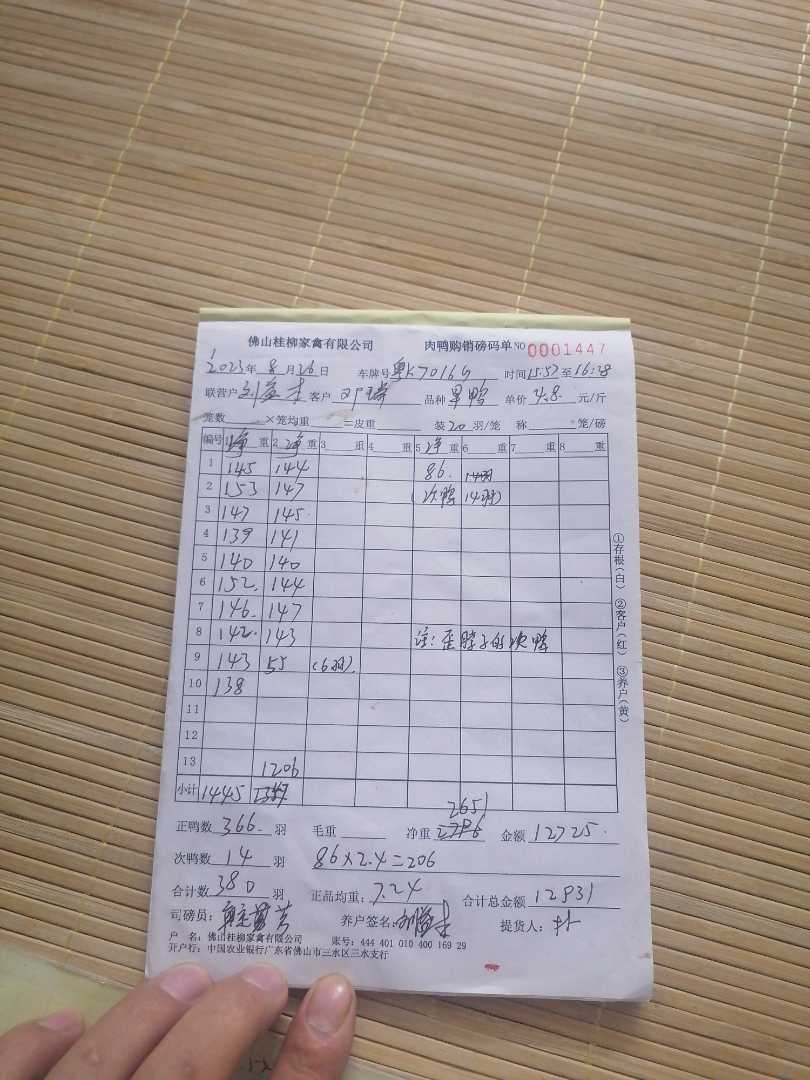 佛山桂柳家禽有限公司 肉鸭购销磅码单 NO 0001447
2023年 8月26日 车牌号 粤K7016G 时间 15:57 至 16:28
联营户 客户 邓 品种 单价 4.8 元/斤
笼数 ×笼均重 =皮重 装 20 羽/笼 称 笼/磅
编号 1 净 重 2 净 重 3 重 4 重 5 净 重 6 重 7 重 8 重
1 145 144 86. 14羽
2 153 147 (次鸭 14羽)
3 147 145.
4 139 141
5 140 140
6 152. 144
7 146. 147
8 142. 143 注:歪脖子的次鸭
9 143 55 (6羽).
10 138
11
12
13 1206
小计 1445 2651
正鸭数 366. 羽 毛重 净重 金额 12725.
次鸭数 14 羽 86×2.4=206
合计数 380 羽 正品均重: 7.24 合计总金额 12931
司磅员: 养户签名: 提货人:
户 名: 佛山桂柳家禽有限公司 账号: 444 401 010 400 169 29
开户行: 中国农业银行广东省佛山市三水区三水支行
①存根(白) ②客户(红) ③养户(黄)